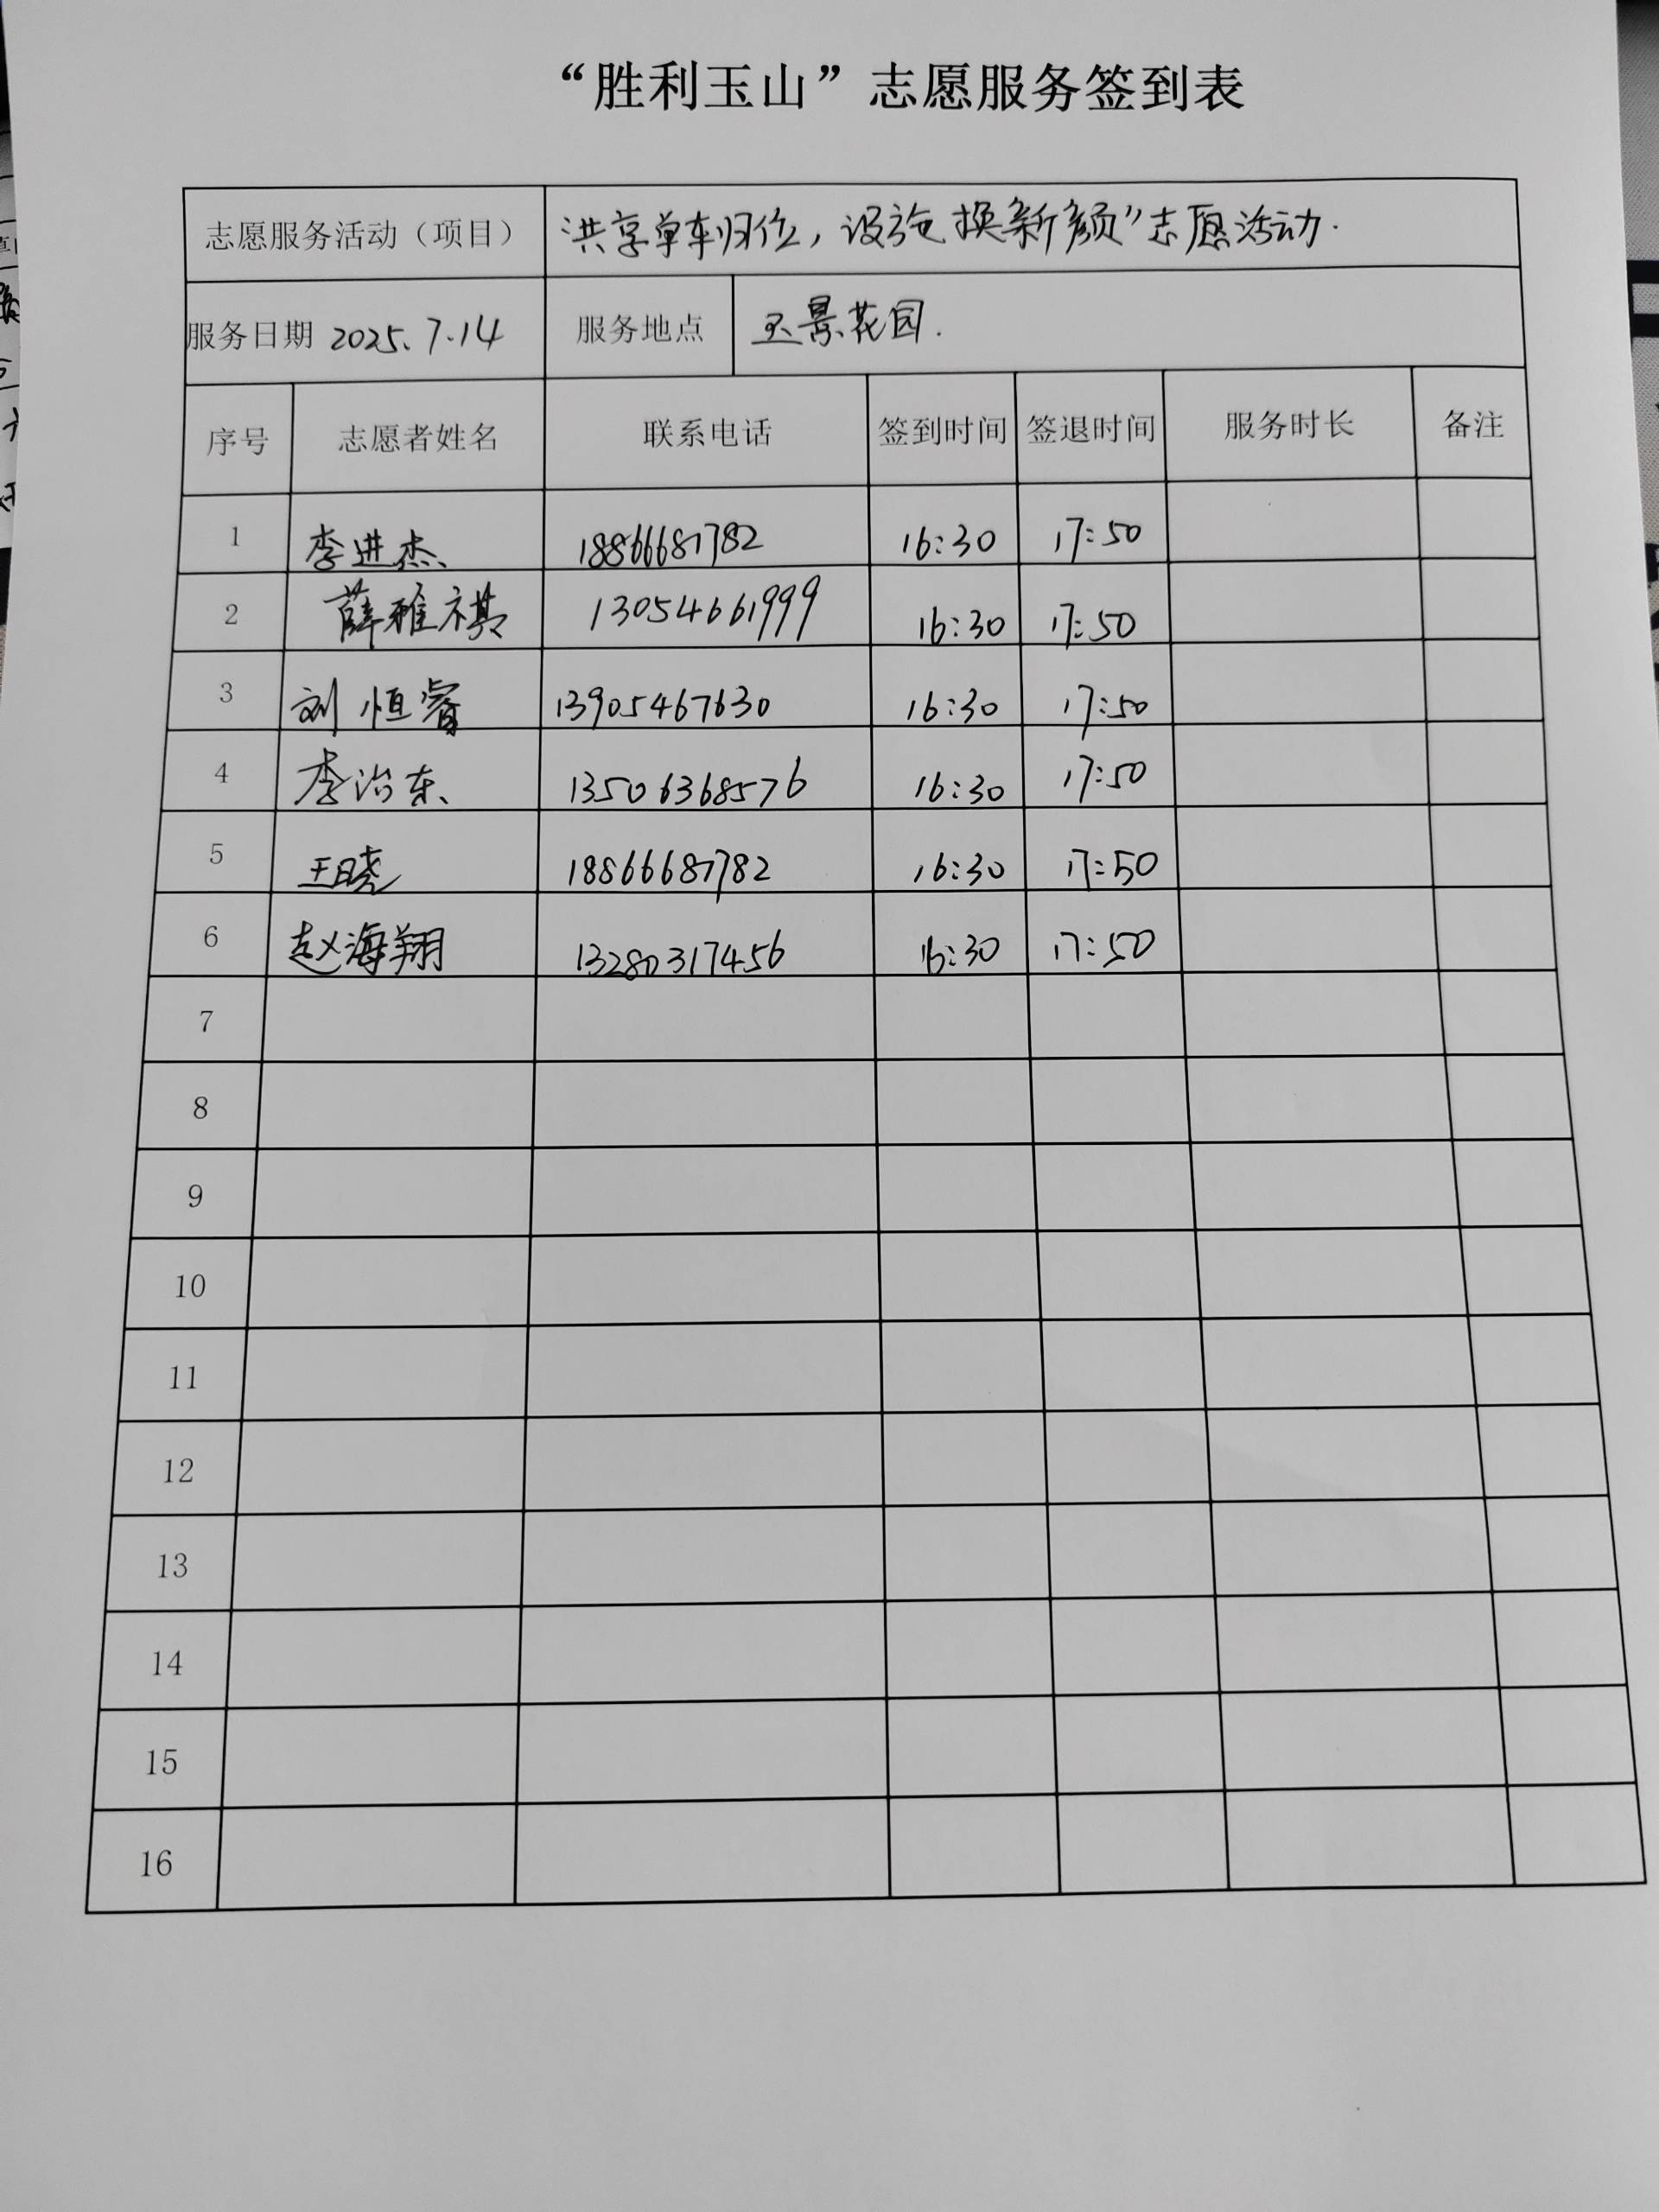 “胜利玉山”志愿服务签到表
志愿服务活动（项目） 洪享单车归位，设施换新颜”志愿活动.
服务日期 2025.7.14 服务地点 玉景花园.
序号 志愿者姓名 联系电话 签到时间 签退时间 服务时长 备注
1 李进杰 18866681782 16:30 17:50
2 薛雅祺 13054661999 16:30 17:50
3 刘恒睿 13905467630 16:30 17:50
4 李治东 13506368576 16:30 17:50
5 王晓 18866681782 16:30 17:50
6 赵海翔 13280317456 16:30 17:50
7
8
9
10
11
12
13
14
15
16